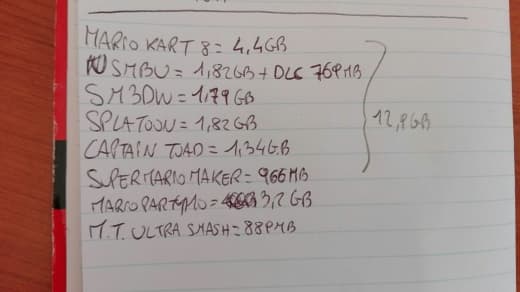 MARIO KART 8 = 4,4GB
NSMBU = 1,82GB + DLC 769MB
SM3DW = 1,79 GB
SPLATOON = 1,82GB
CAPTAIN TOAD = 1,34GB
12,9GB
SUPER MARIO MAKER = 966MB
MARIO PARTY10 = 3,2 GB
M.T. ULTRA SMASH = 889MB